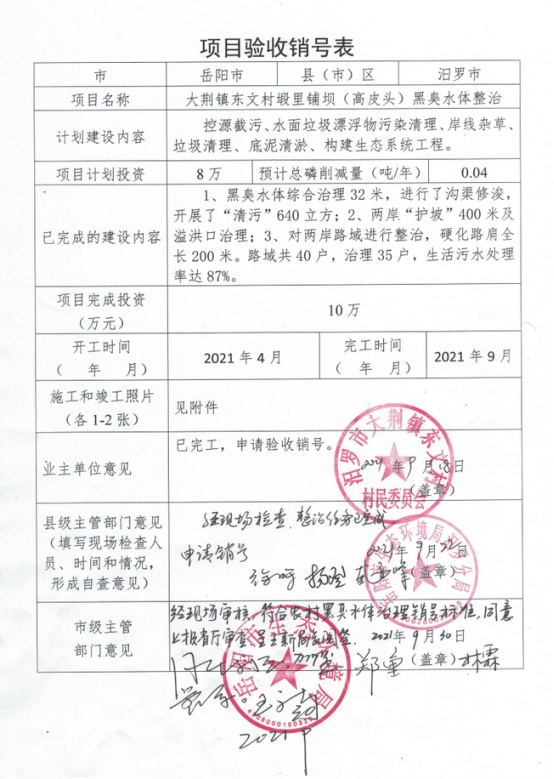 项目验收销号表
市 岳阳市 县（市）区 汨罗市
项目名称 大荆镇东文村塅里铺坝（高皮头）黑臭水体整治
计划建设内容 控源截污、水面垃圾漂浮物污染清理、岸线杂草、
垃圾清理、底泥清淤、构建生态系统工程。
项目计划投资 8万 预计总磷削减量（吨/年） 0.04
已完成的建设内容 1、黑臭水体综合治理32米，进行了沟渠修浚，
开展了“清污”640立方；2、两岸“护坡”400米及
溢洪口治理；3、对两岸路域进行整治，硬化路肩全
长200米。路域共40户，治理35户，生活污水处理
率达87%。
项目完成投资
（万元）
10万
开工时间
（ 年 月）
2021年4月
完工时间
（ 年 月）
2021年9月
施工和竣工照片
（各1-2张）
见附件
业主单位意见
已完工，申请验收销号。
2021年9月18日
（盖章）
汨罗市大荆镇东文村
村民委员会
县级主管部门意见
（填写现场检查人
员、时间和情况，
形成自查意见）
经现场检查，整治任务已完成。
申请销号
2021年9月22日
（盖章）
市级主管
部门意见
经现场审核，符合农村黑臭水体治理销号标准，同意
上报省厅审查
2021年9月30日
（盖章）
岳阳市生态环境局
2021